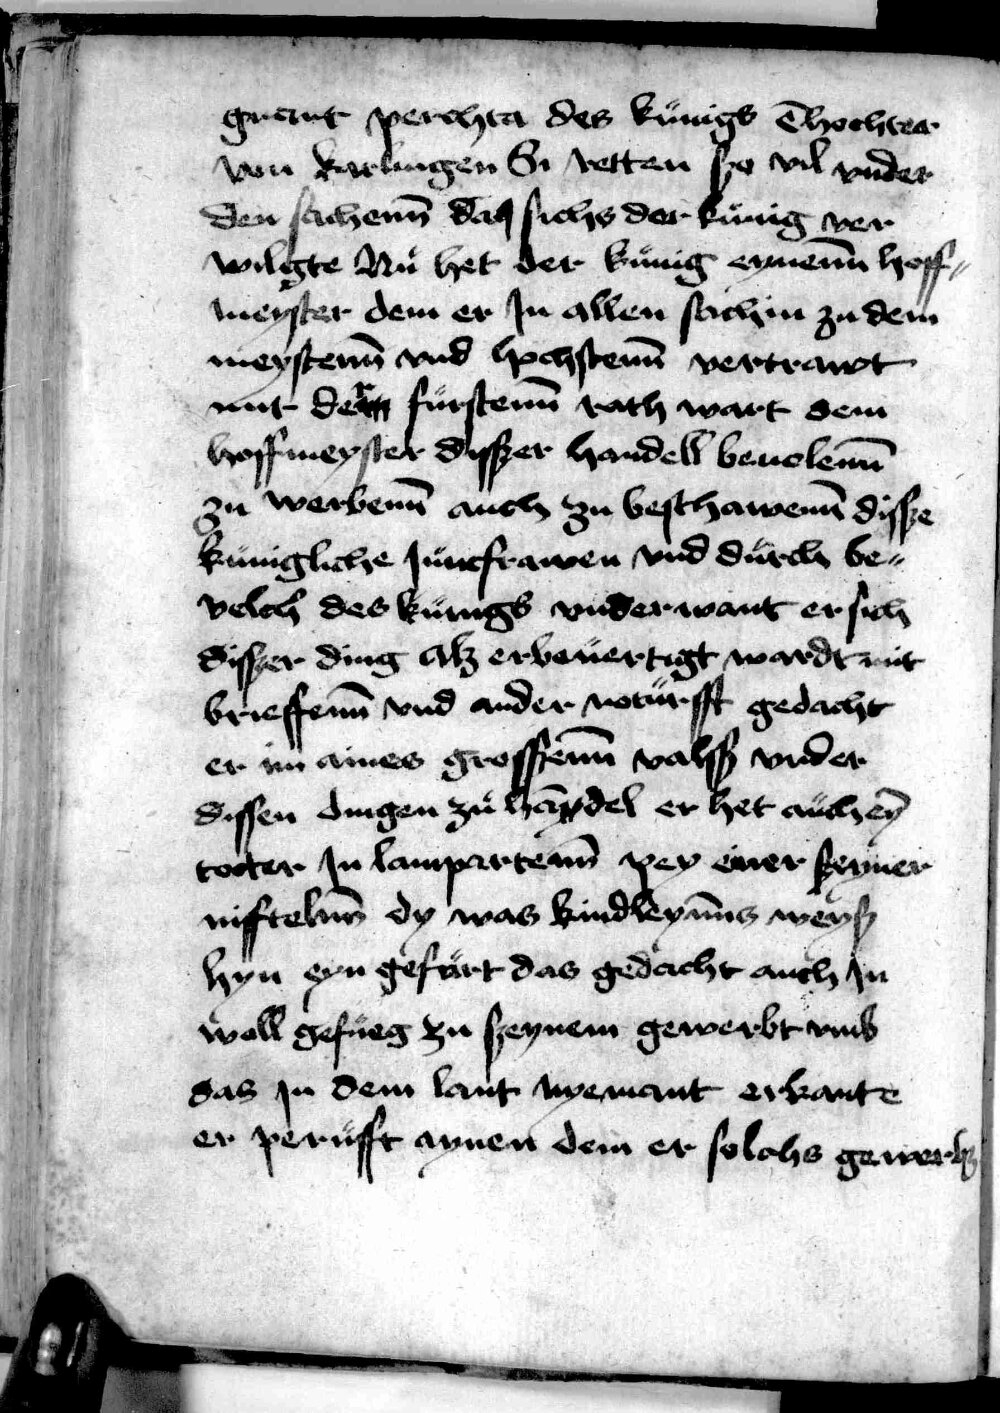 gnant perchta des künigs Thochter
von karlingen Si retten so vil vnder
den sachenn das sichs der künig ver
wilgte Nü het der künig eynenn hoff„
meyster dem er In allen sachin zu dem
meystenn vnd hochstenn vertrawt
mit der fürstenn rath wart dem
hoffmeyster disßer handell beuolenn
zu werbenn auch zu besthawenn disße
künigliche Juncfrawen vnd dürch be„
velch des künigs vnderwant er sich
disßer ding Alz er beuertigt wardt mit
brieffenn vnd ander notürfft gedacht
er im aines grossenn valsß vnder
dissen dingen zü handel er het auch ey
tocter In lampartenn pey einer seyner
nifftelnn dy was kindleynns weyß
hyn eyn gefürt das gedacht auch In
woll gefüeg zu seynem gewerbt vmb
das In dem lant nyemant erkante
er perüfft aynen dem er solchs gewerbz